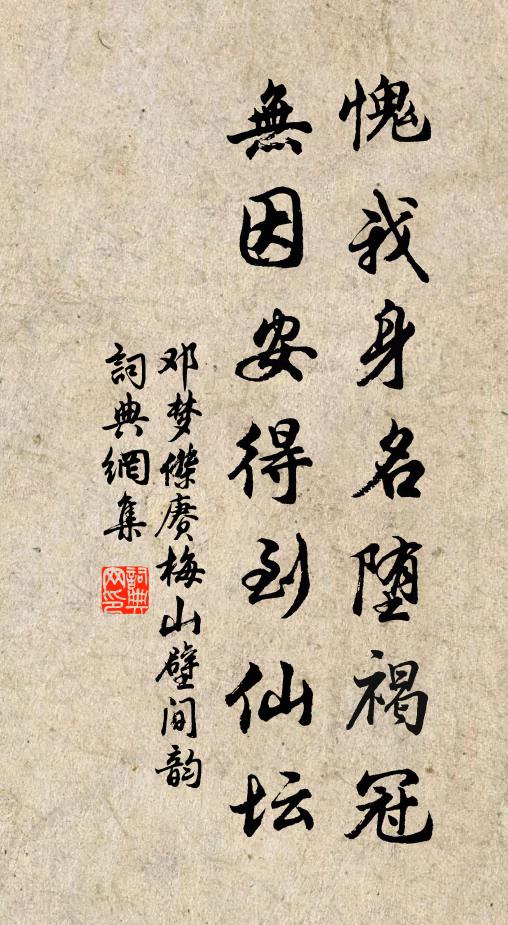 愧我身名堕褐冠
無因安得到仙坛
邓梦傑赓梅山壁间韵
詞典網集
詞典网印